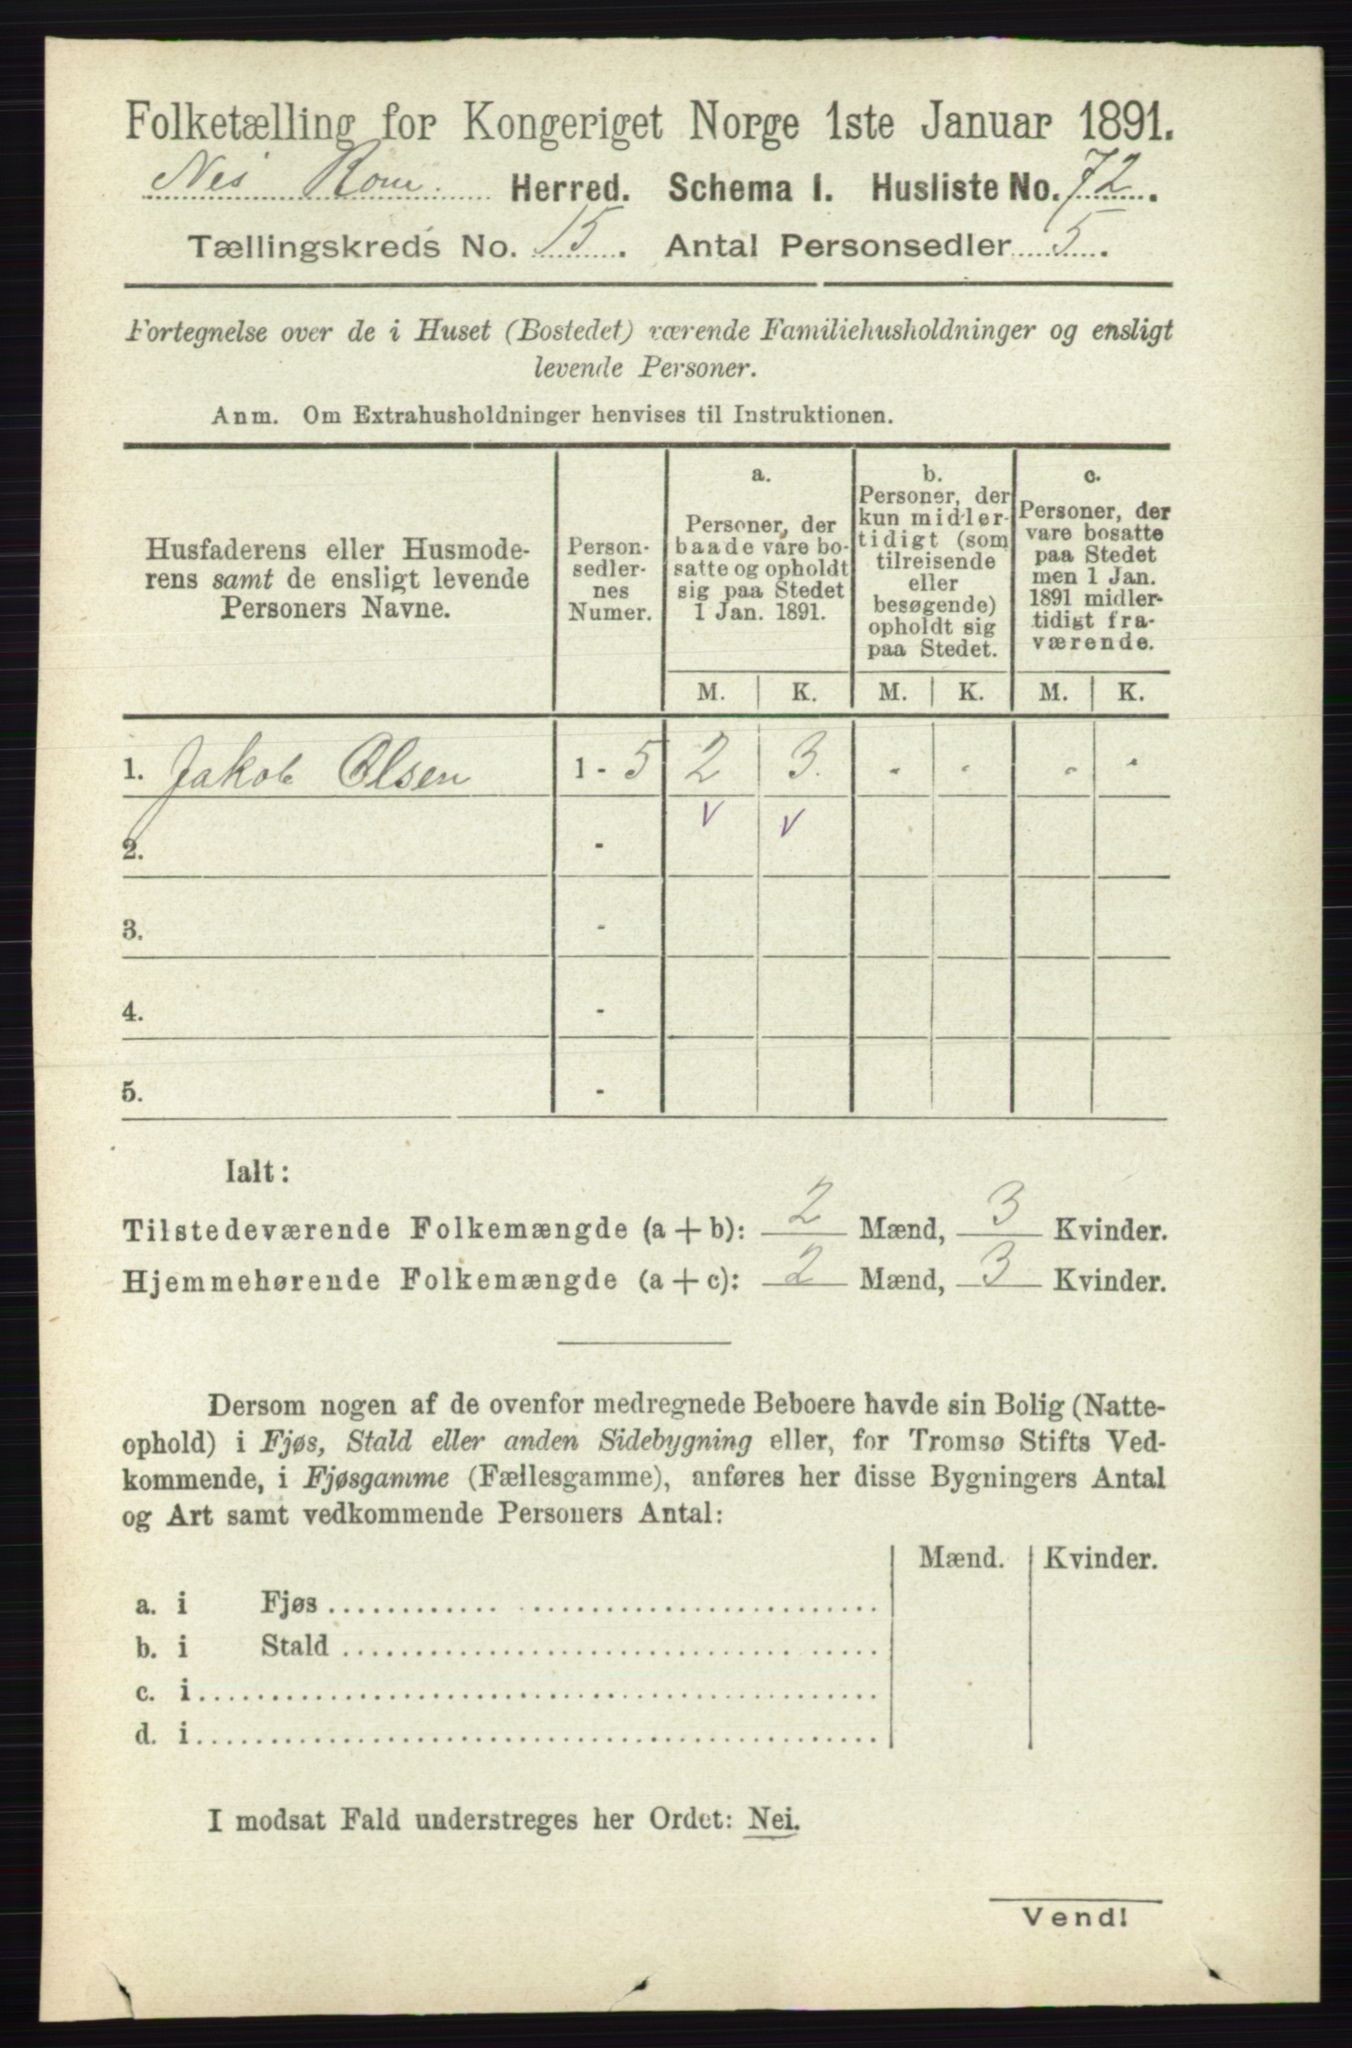 Folketælling for Kongeriget Norge 1ste Januar 1891.
Nes Rom. Herred. Schema I. Husliste No. 72.
Tællingskreds No. 15. Antal Personsedler 5.
Fortegnelse over de i Huset (Bostedet) værende Familiehusholdninger og ensligt
levende Personer.
Anm. Om Extrahusholdninger henvises til Instruktionen.
Husfaderens eller Husmode-
rens samt de ensligt levende
Personers Navne.
Person-
sedler-
nes
Numer.
a.
Personer, der
baade vare bo-
satte og opholdt
sig paa Stedet
1 Jan. 1891.
b.
Personer, der
kun midler-
tidigt (som
tilreisende
eller
besøgende)
opholdt sig
paa Stedet.
c.
Personer, der
vare bosatte
paa Stedet
men 1 Jan.
1891 midler-
tidigt fra-
værende.
M. K. M. K. M. K.
1. Jakob Olsen 1 - 5 2 3. - - - -
v v
2. -
3. -
4. -
5. -
Ialt:
Tilstedeværende Folkemængde (a + b): 2 Mænd, 3 Kvinder.
Hjemmehørende Folkemængde (a + c): 2 Mænd, 3 Kvinder.
Dersom nogen af de ovenfor medregnede Beboere havde sin Bolig (Natte-
ophold) i Fjøs, Stald eller anden Sidebygning eller, for Tromsø Stifts Ved-
kommende, i Fjøsgamme (Fællesgamme), anføres her disse Bygningers Antal
og Art samt vedkommende Personers Antal:
Mænd. Kvinder.
a. i Fjøs
b. i Stald
c. i
d. i
I modsat Fald understreges her Ordet: Nei.
Vend!